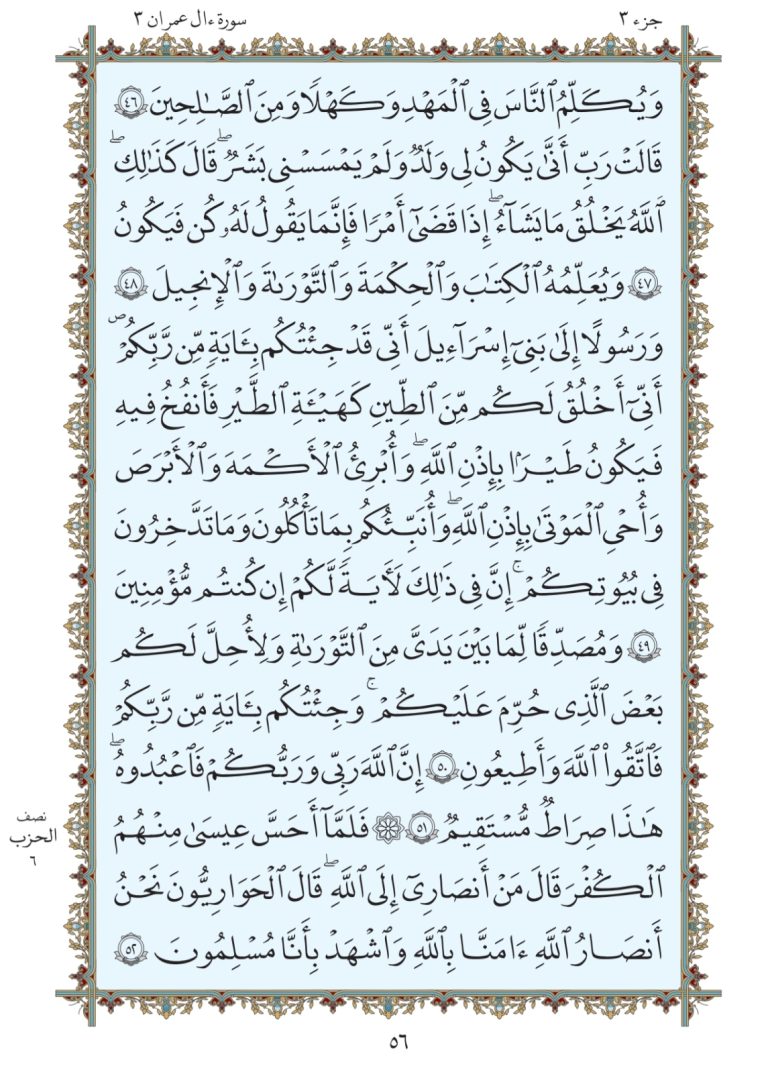 جزء ٣
سورة ءال عمران ٣
وَيُكَلِّمُ ٱلنَّاسَ فِي ٱلْمَهْدِ وَكَهْلًا وَمِنَ ٱلصَّٰلِحِينَ ٤٦
قَالَتْ رَبِّ أَنَّىٰ يَكُونُ لِي وَلَدٌ وَلَمْ يَمْسَسْنِي بَشَرٌ ۖ قَالَ كَذَٰلِكِ
ٱللَّهُ يَخْلُقُ مَا يَشَآءُ ۖ إِذَا قَضَىٰٓ أَمْرًا فَإِنَّمَا يَقُولُ لَهُۥ كُن فَيَكُونُ
٤٧ وَيُعَلِّمُهُ ٱلْكِتَٰبَ وَٱلْحِكْمَةَ وَٱلتَّوْرَىٰةَ وَٱلْإِنجِيلَ ٤٨
وَرَسُولًا إِلَىٰ بَنِيٓ إِسْرَآءِيلَ أَنِّي قَدْ جِئْتُكُم بِـَٔايَةٍ مِّن رَّبِّكُمْ ۖ
أَنِّيٓ أَخْلُقُ لَكُم مِّنَ ٱلطِّينِ كَهَيْـَٔةِ ٱلطَّيْرِ فَأَنفُخُ فِيهِ
فَيَكُونُ طَيْرًۢا بِإِذْنِ ٱللَّهِ ۖ وَأُبْرِئُ ٱلْأَكْمَهَ وَٱلْأَبْرَصَ
وَأُحْيِ ٱلْمَوْتَىٰ بِإِذْنِ ٱللَّهِ ۖ وَأُنَبِّئُكُم بِمَا تَأْكُلُونَ وَمَا تَدَّخِرُونَ
فِي بُيُوتِكُمْ ۚ إِنَّ فِي ذَٰلِكَ لَأٓيَةً لَّكُمْ إِن كُنتُم مُّؤْمِنِينَ
٤٩ وَمُصَدِّقًا لِّمَا بَيْنَ يَدَيَّ مِنَ ٱلتَّوْرَىٰةِ وَلِأُحِلَّ لَكُم
بَعْضَ ٱلَّذِي حُرِّمَ عَلَيْكُمْ ۚ وَجِئْتُكُم بِـَٔايَةٍ مِّن رَّبِّكُمْ
فَٱتَّقُوا۟ ٱللَّهَ وَأَطِيعُونِ ٥٠ إِنَّ ٱللَّهَ رَبِّي وَرَبُّكُمْ فَٱعْبُدُوهُ ۗ
هَٰذَا صِرَٰطٌ مُّسْتَقِيمٌ ٥١ ۞ فَلَمَّآ أَحَسَّ عِيسَىٰ مِنْهُمُ
ٱلْكُفْرَ قَالَ مَنْ أَنصَارِيٓ إِلَى ٱللَّهِ ۖ قَالَ ٱلْحَوَارِيُّونَ نَحْنُ
أَنصَارُ ٱللَّهِ ءَامَنَّا بِٱللَّهِ وَٱشْهَدْ بِأَنَّا مُسْلِمُونَ ٥٢
نصف
الحزب
٦
٥٦